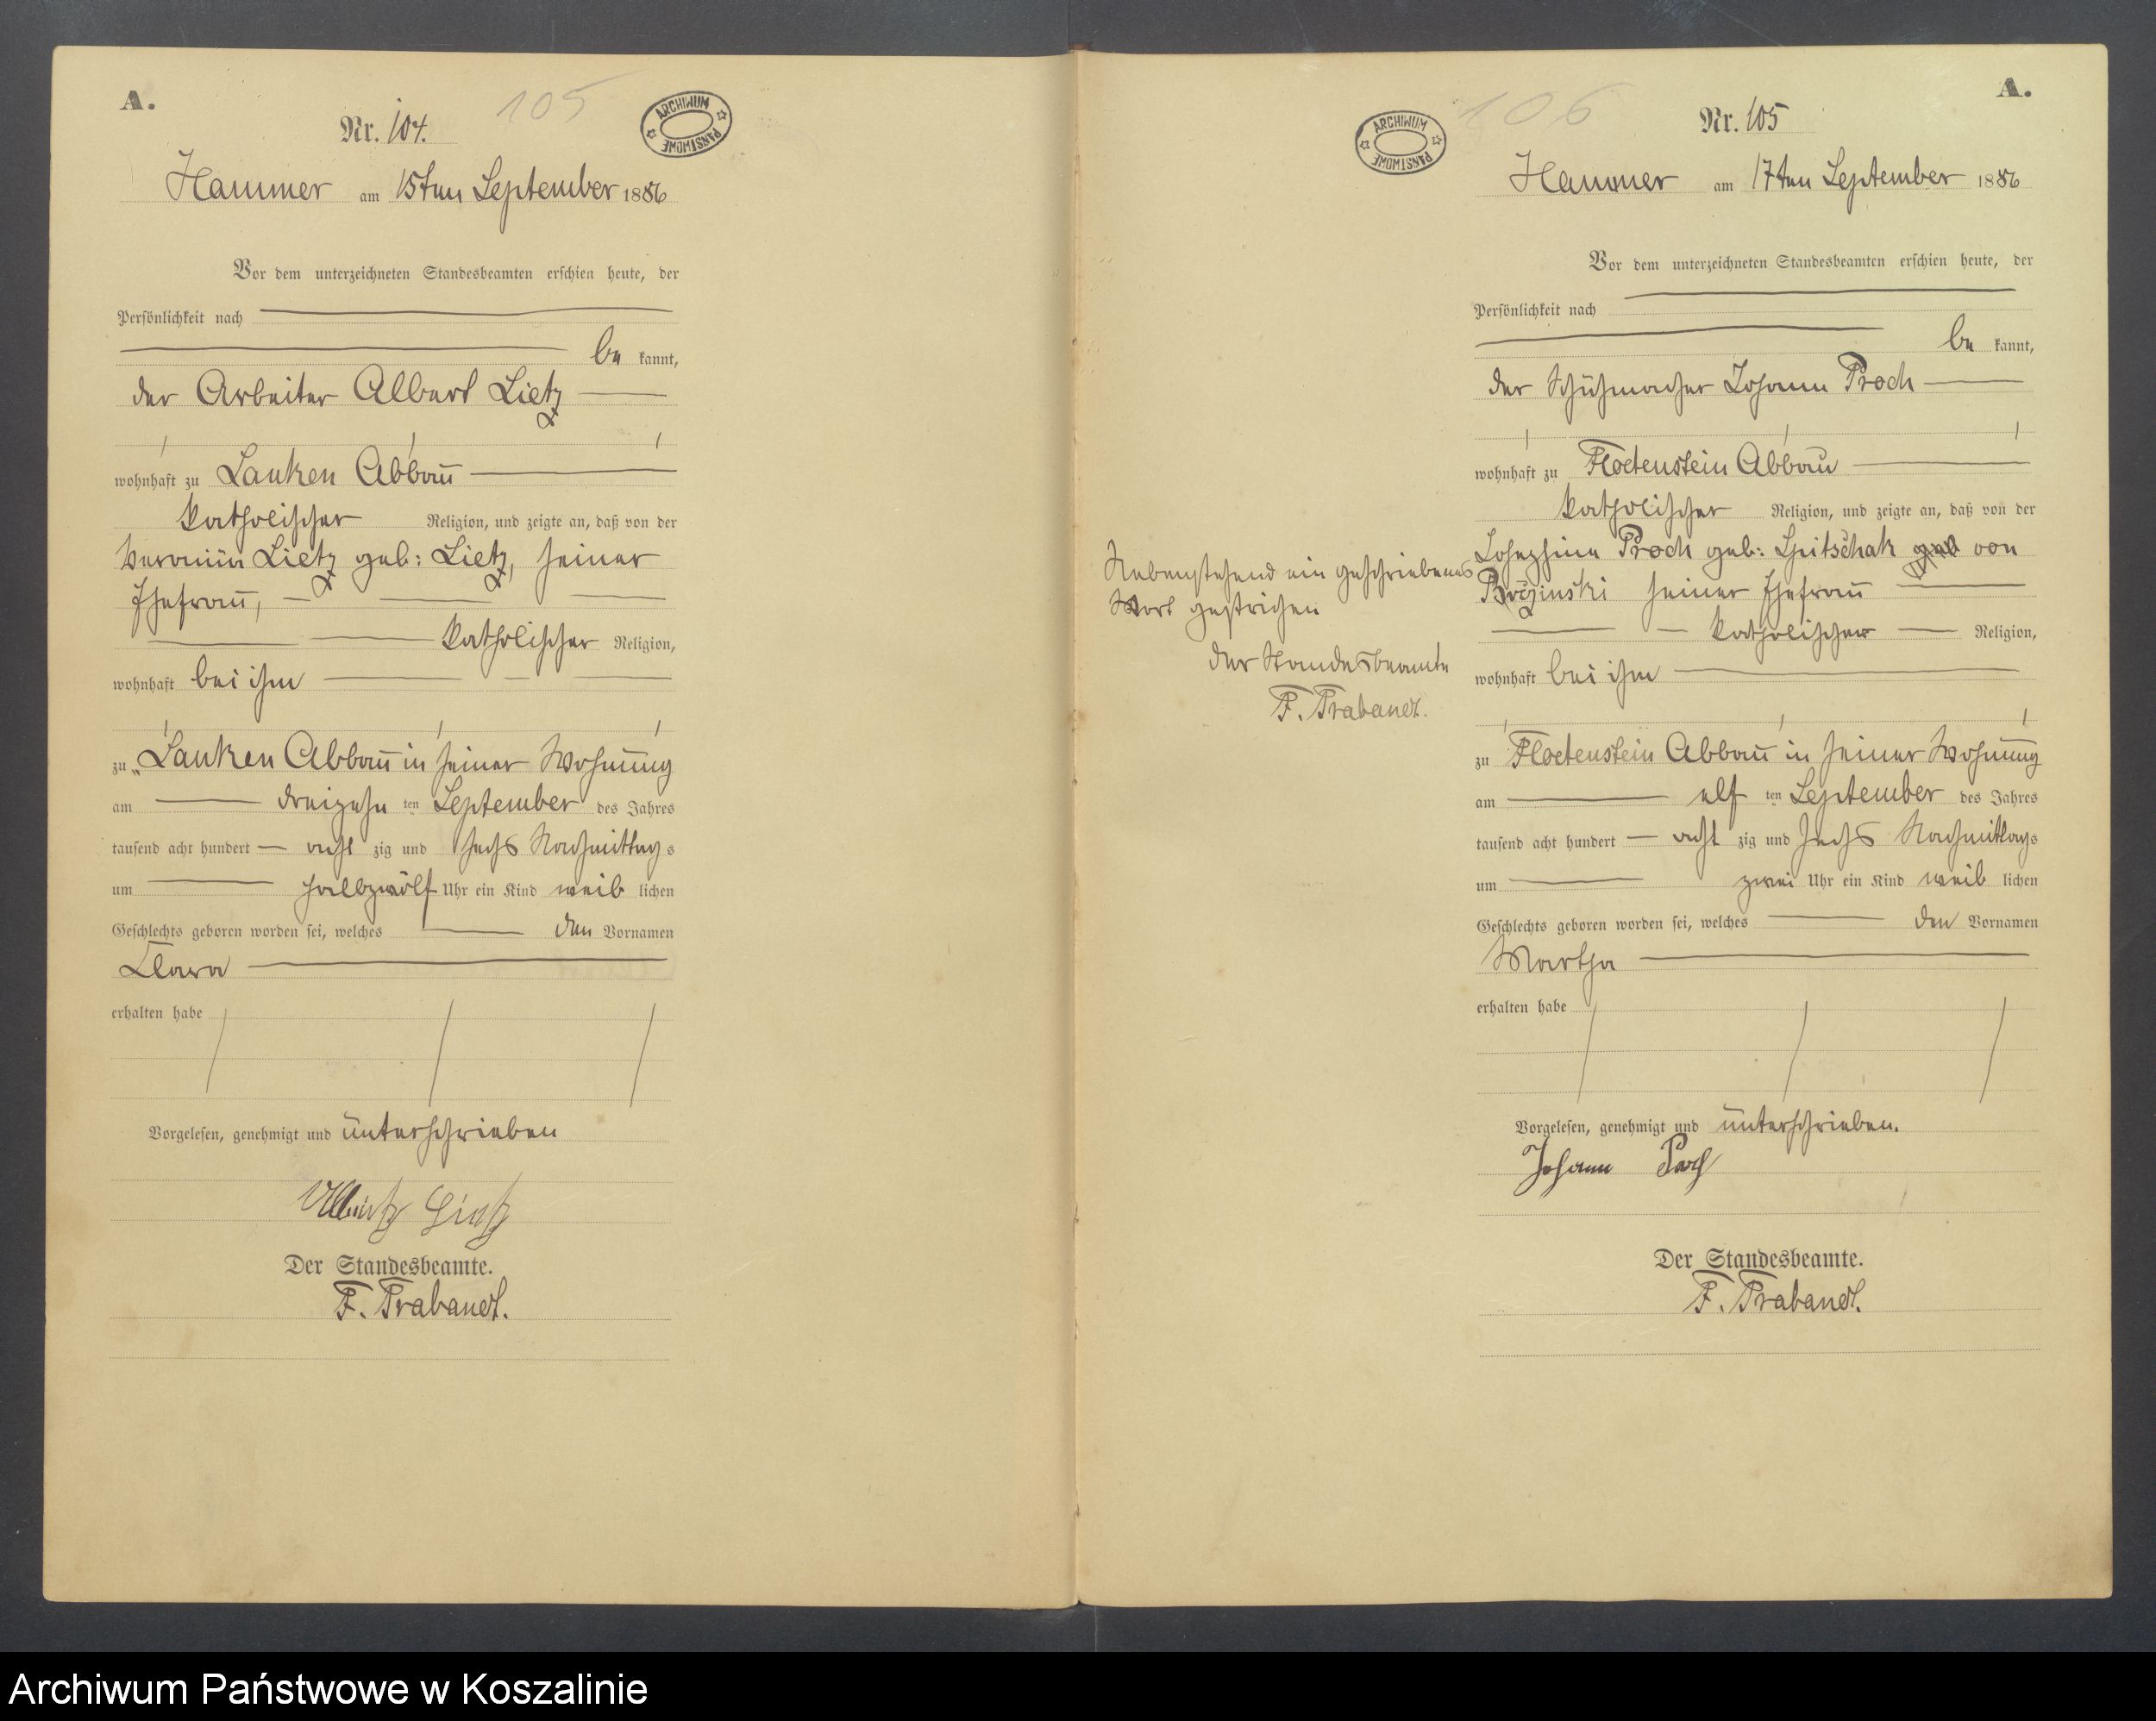 A.
105
Nr. 104.
ARCHIWUM PAŃSTWOWE
Hammer am 15ten September 1886
Vor dem unterzeichneten Standesbeamten erschien heute, der
Persönlichkeit nach
be kannt,
der Arbeiter Albert Lietz
wohnhaft zu Lanken Abbau
katholischer Religion, und zeigte an, daß von der
Lietz geb: Lietz, seiner
Ehefrau,
katholischer Religion,
wohnhaft bei ihm
zu Lanken Abbau in seiner Wohnung
am dreizehn ten September des Jahres
tausend acht hundert acht zig und sechs Nachmittags
um halbzwölf Uhr ein Kind weib lichen
Geschlechts geboren worden sei, welches den Vornamen
Clara
erhalten habe
Vorgelesen, genehmigt und unterschrieben
Lietz
Der Standesbeamte.
F. Trabandt.
A.
106
Nr. 105
ARCHIWUM PAŃSTWOWE
Hammer am 17ten September 1886
Vor dem unterzeichneten Standesbeamten erschien heute, der
Persönlichkeit nach
be kannt,
der Schuhmacher Johann Proch
wohnhaft zu Floetenstein Abbau
katholischer Religion, und zeigte an, daß von der
Josephine Proch geb: Spitschak geb von
seiner Ehefrau
katholischer Religion,
wohnhaft bei ihm
zu Floetenstein Abbau in seiner Wohnung
am elf ten September des Jahres
tausend acht hundert acht zig und sechs Nachmittags
um zwei Uhr ein Kind weib lichen
Geschlechts geboren worden sei, welches den Vornamen
Martha
erhalten habe
Vorgelesen, genehmigt und unterschrieben.
Johann Proch
Der Standesbeamte.
F. Trabandt.
Nebenstehend ein geschriebenes
Wort gestrichen
Der Standesbeamte
F. Trabandt.
Archiwum Państwowe w Koszalinie